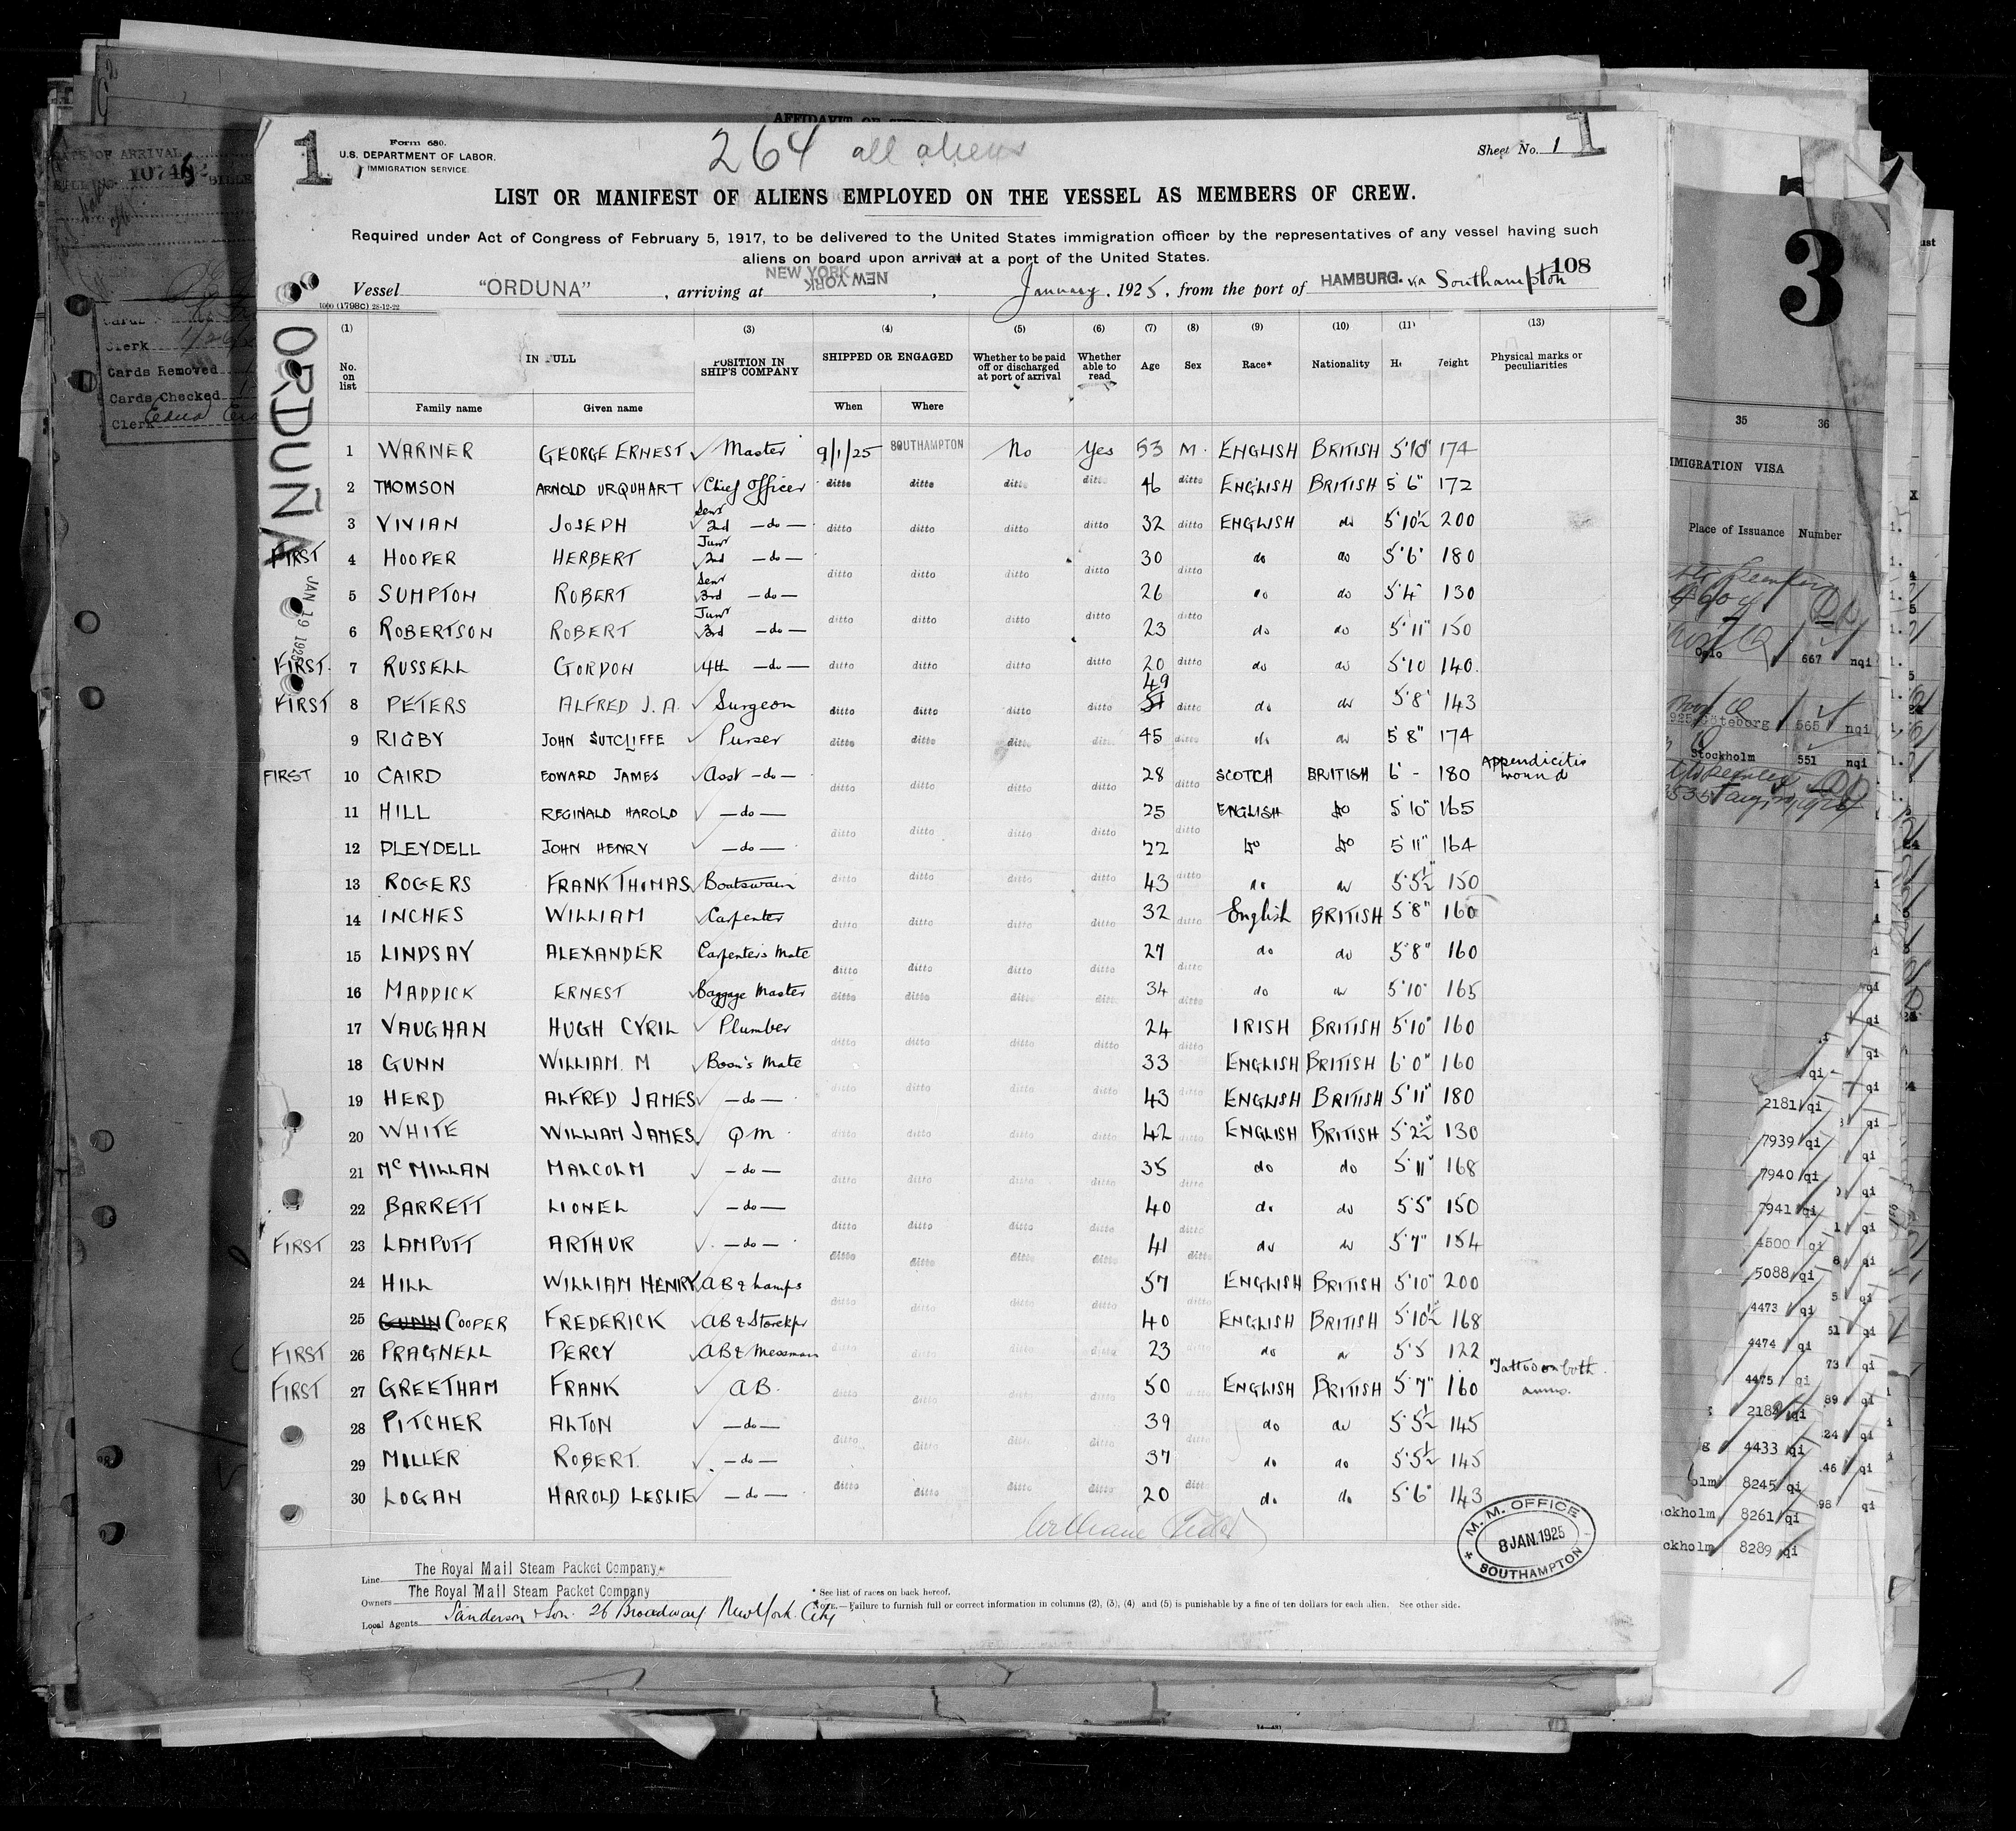 1
Form 680.
U.S. DEPARTMENT OF LABOR.
IMMIGRATION SERVICE
264 all aliens
Sheet No. 1
1
LIST OR MANIFEST OF ALIENS EMPLOYED ON THE VESSEL AS MEMBERS OF CREW.
Required under Act of Congress of February 5, 1917, to be delivered to the United States immigration officer by the representatives of any vessel having such
aliens on board upon arrival at a port of the United States.
108
Vessel "ORDUNA", arriving at NEW YORK NEW YORK, January, 1925, from the port of HAMBURG. via Southampton
1000 (1798C) 28-12-22
ORDUÑA
JAN 19 1925
(1) (3) (4) (5) (6) (7) (8) (9) (10) (11) (13)
No. on list IN FULL POSITION IN SHIP'S COMPANY SHIPPED OR ENGAGED Whether to be paid off or discharged at port of arrival Whether able to read Age Sex Race* Nationality Physical marks or peculiarities
Family name Given name When Where
1 WARNER GEORGE ERNEST Master 9/1/25 SOUTHAMPTON No Yes 53 M. ENGLISH BRITISH 5'10" 174
2 THOMSON ARNOLD URQUHART Chief Officer ditto ditto ditto ditto 46 ditto ENGLISH BRITISH 5 6" 172
3 VIVIAN JOSEPH Senr 2nd —do— ditto ditto ditto ditto 32 ditto ENGLISH do 5'10½ 200
FIRST 4 HOOPER HERBERT Junr 2nd —do— ditto ditto ditto ditto 30 ditto do do 5'6" 180
5 SUMPTON ROBERT Senr 3rd —do— 26 do do 5'4" 130
6 ROBERTSON ROBERT Junr 3rd —do— ditto ditto ditto ditto 23 ditto do do 5'11" 150
FIRST. 7 RUSSELL GORDON 4th —do— ditto ditto ditto ditto 20 ditto do do 5'10 140.
FIRST 8 PETERS ALFRED J. A. Surgeon ditto ditto ditto ditto 49 51 ditto do do 5'8" 143
9 RIGBY JOHN SUTCLIFFE Purser ditto ditto ditto ditto 45 ditto do do 5 8" 174
FIRST 10 CAIRD EDWARD JAMES Asst —do— ditto ditto ditto ditto 28 ditto SCOTCH BRITISH 6' - 180 Appendicitis wound
11 HILL REGINALD HAROLD —do— ditto ditto ditto ditto 25 ditto ENGLISH do 5 10" 165
12 PLEYDELL JOHN HENRY —do— 22 do do 5 11" 164
13 ROGERS FRANK THOMAS Boatswain ditto ditto ditto ditto 43 ditto do do 5'5½ 150
14 INCHES WILLIAM Carpenter ditto ditto ditto ditto 32 ditto English BRITISH 5'8" 160
15 LINDSAY ALEXANDER Carpenter's Mate ditto ditto ditto ditto 27 ditto do do 5'8" 160
16 MADDICK ERNEST Baggage Master ditto ditto ditto ditto 34 ditto do do 5'10" 165
17 VAUGHAN HUGH CYRIL Plumber ditto ditto ditto ditto 24 ditto IRISH BRITISH 5'10" 160
18 GUNN WILLIAM. M Bosn's Mate 33 ENGLISH BRITISH 6'0" 160
19 HERD ALFRED JAMES —do— ditto ditto ditto ditto 43 ditto ENGLISH BRITISH 5'11" 180
20 WHITE WILLIAM JAMES QM ditto ditto ditto ditto 42 ditto ENGLISH BRITISH 5'2½ 130
21 McMILLAN MALCOLM —do— ditto ditto ditto ditto 35 ditto do do 5'11" 168
22 BARRETT LIONEL —do— ditto ditto ditto ditto 40 ditto do do 5'5" 150
FIRST 23 LAMPUTT ARTHUR —do— ditto ditto ditto ditto 41 ditto do do 5'7" 154
24 HILL WILLIAM HENRY AB & Lamps ditto ditto ditto ditto 57 ditto ENGLISH BRITISH 5'10" 200
25 GUNN COOPER FREDERICK AB & Storekpr 40 ENGLISH BRITISH 5'10½ 168
FIRST 26 PRAGNELL PERCY AB & Messman ditto ditto ditto ditto 23 ditto do do 5'5 122
FIRST 27 GREETHAM FRANK AB. ditto ditto ditto ditto 50 ditto ENGLISH BRITISH 5'7" 160 Tattoo on both arms.
28 PITCHER ALTON —do— ditto ditto ditto ditto 39 ditto do do 5'5½ 145
29 MILLER ROBERT. —do— 37 do do 5'5½ 145
30 LOGAN HAROLD LESLIE —do— ditto ditto ditto ditto 20 ditto do do 5'6" 143
M. M. OFFICE
8 JAN. 1925
SOUTHAMPTON
Line The Royal Mail Steam Packet Company
Owners The Royal Mail Steam Packet Company
Local Agents Sanderson & Son. 26 Broadway New York City
* See list of races on back hereof.
NOTE.—Failure to furnish full or correct information in columns (2), (3), (4) and (5) is punishable by a fine of ten dollars for each alien. See other side.
OF ARRIVAL
Clerk
Cards Removed
Cards Checked
Clerk
3
35 36
IMMIGRATION VISA
Place of Issuance Number
Oslo 667 nqi
Göteborg 565 nqi
Stockholm 551 nqi
2181 qi
7939 qi
7940 qi
7941 qi
4500 qi
5088 qi
4473 qi
4474 qi
4475 qi
2184 qi
4433 qi
olm 8245 qi
ckholm 8261 qi
ckholm 8289 qi